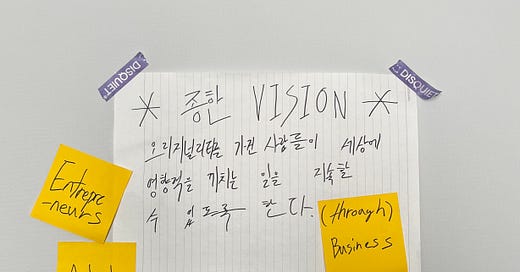 DISQUIET
DISQUIET
* 종한 VISION *
오리지널리티를 가진 사람들이 세상에
영향력을 끼치는 일을 지속할
수 있도록 한다.
Entrepre
-neurs
(through)
Business